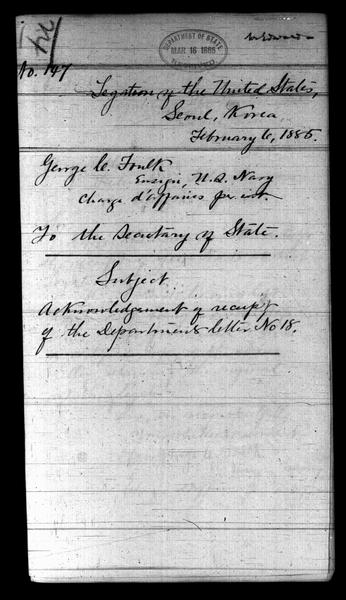 DEPARTMENT OF STATE
MAR 16 1886
RECEIVED
No. 147
Legation of the United States,
Seoul, Korea
February 6, 1886.
George C. Foulk
Ensign, U.S. Navy
Chargé d'affaires per int.
To the Secretary of State.
Subject
Acknowledgement of receipt
of the Department's letter No 18.